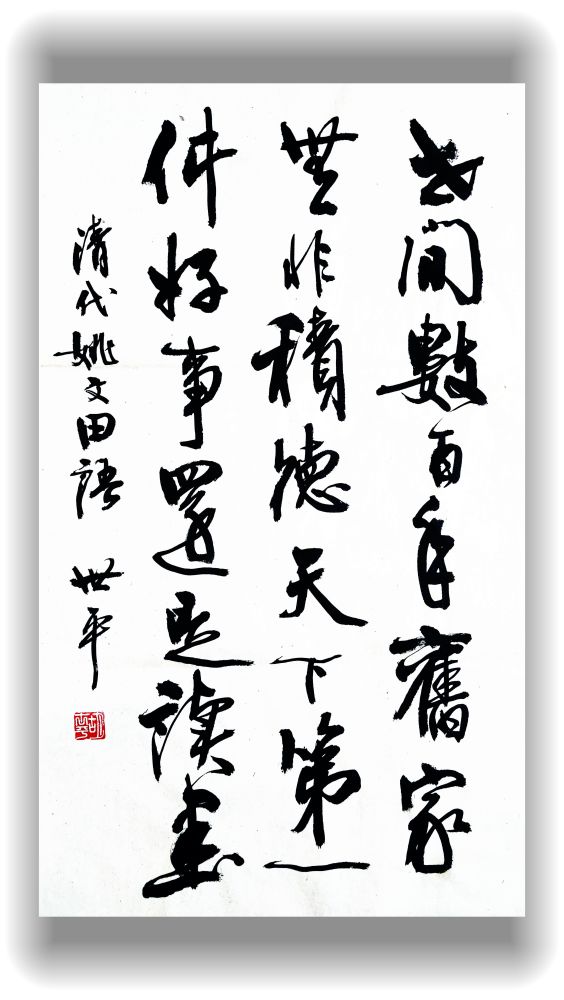 世間數百年舊家
無非積德天下第一
件好事還是讀書
清代姚文田語 世平